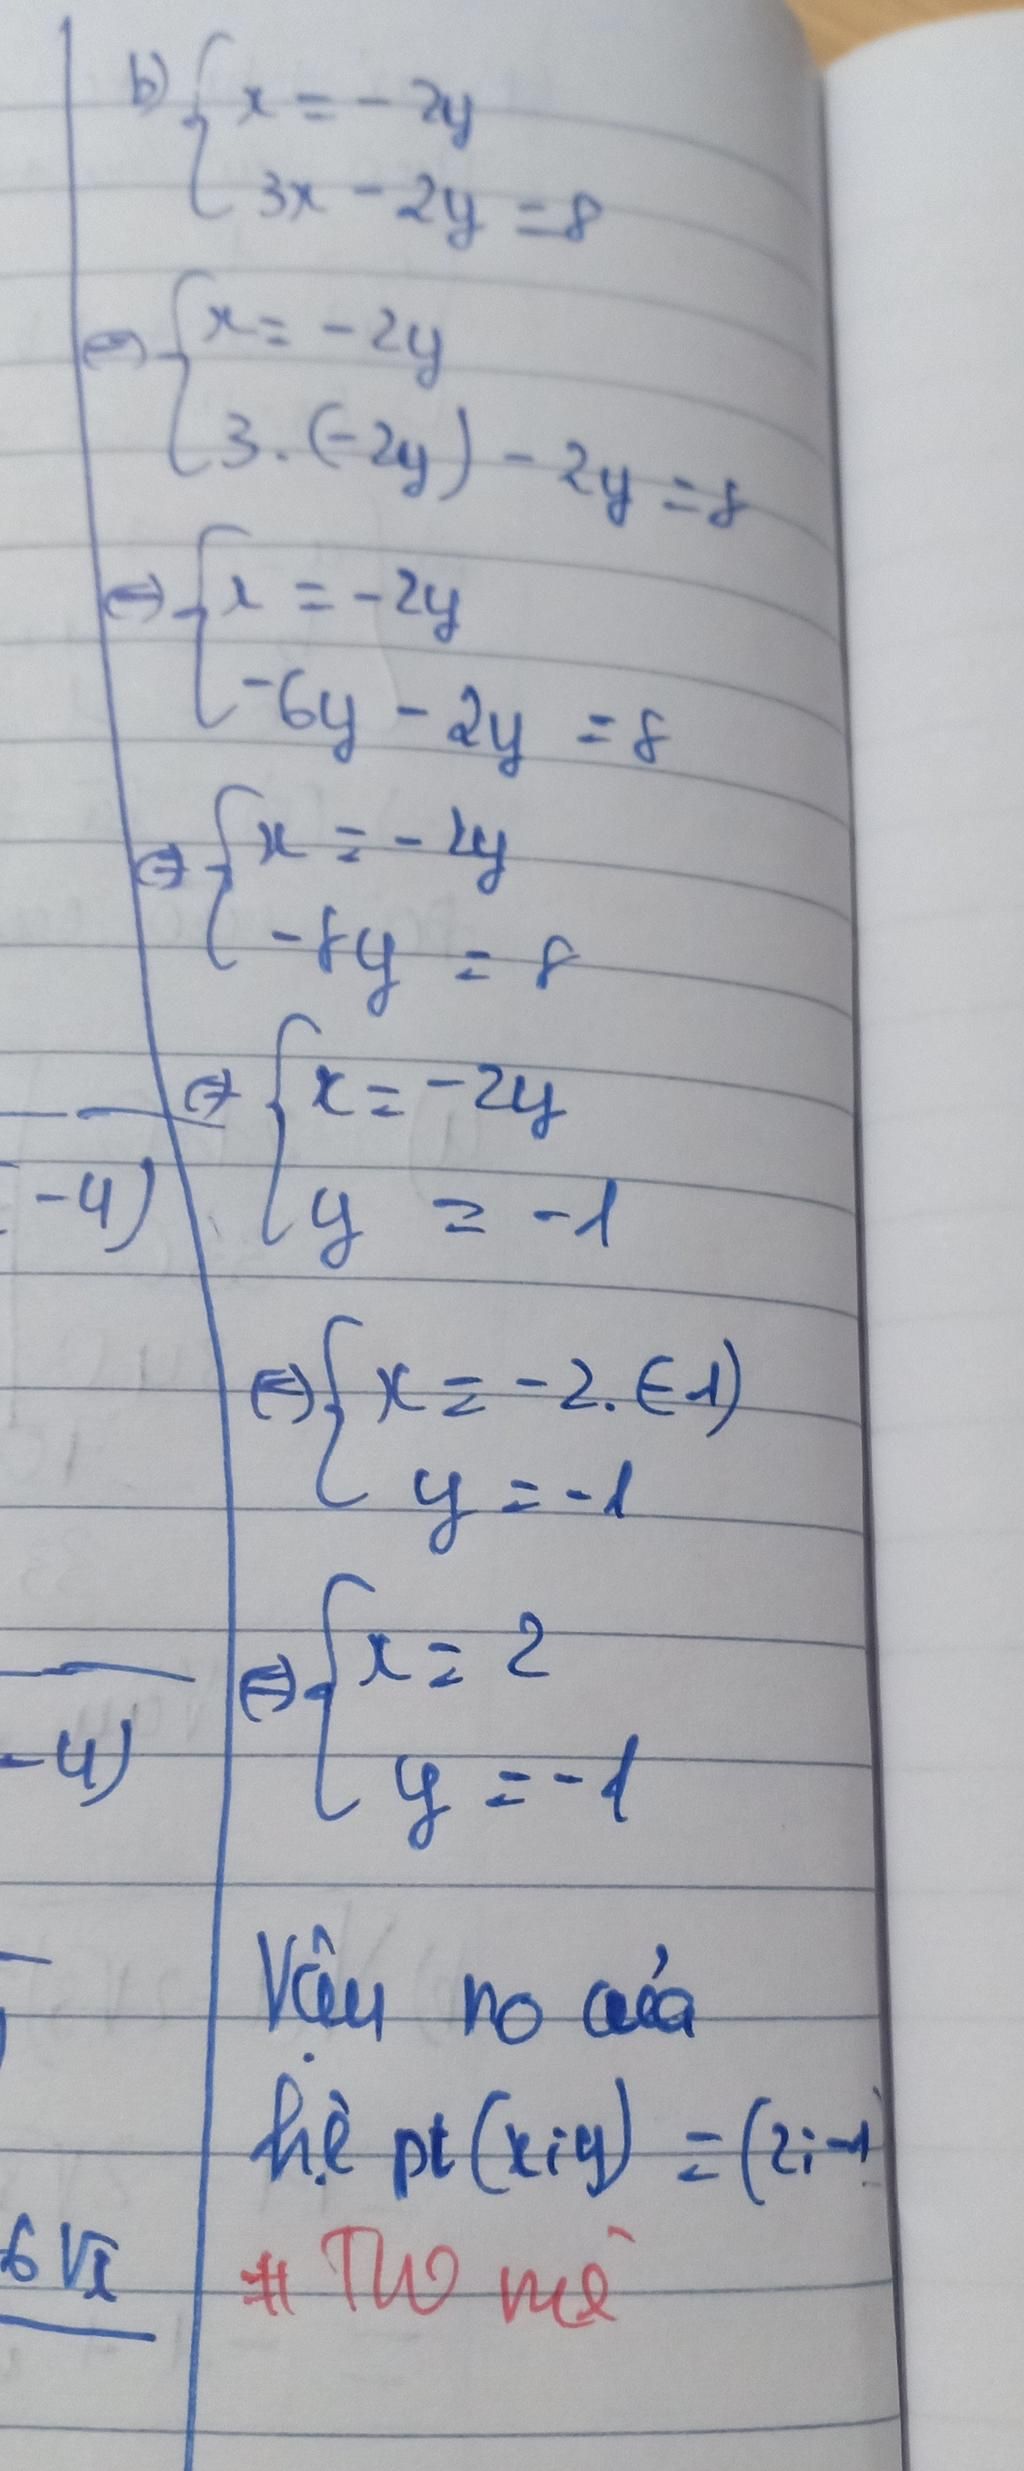 b) { x = -2y
3x - 2y = 8
⇔ { x = -2y
3.(-2y) - 2y = 8
⇔ { x = -2y
-6y - 2y = 8
⇔ { x = -2y
-8y = 8
⇔ { x = -2y
y = -1
-4)
⇔ { x = -2.(-1)
y = -1
⇔ { x = 2
y = -1
-4)
Vậy no của
hệ pt (x;y) = (2;-1
6√x
#